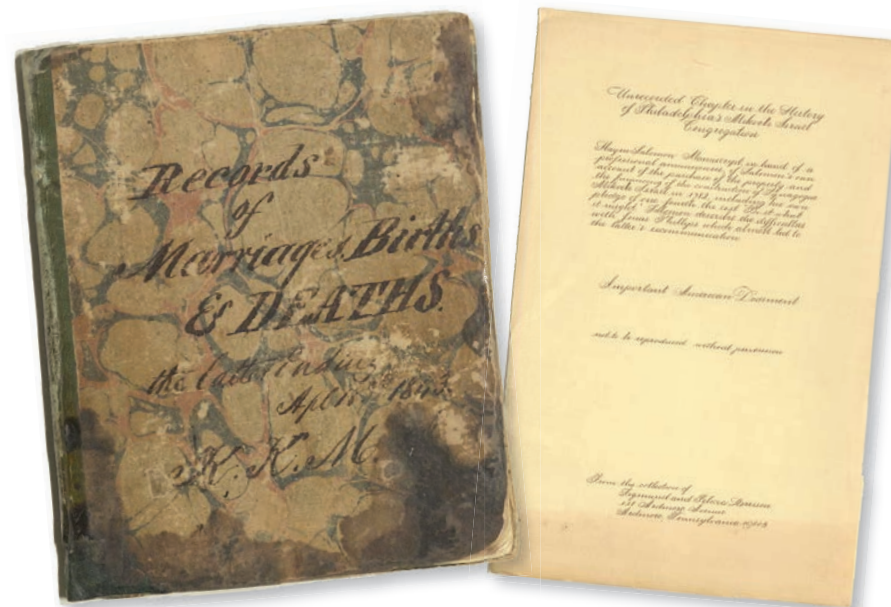 Records
of
Marriages, Births
& DEATHS.
the latter Ending
Apl 1843
K. K. M.
Unrecorded Chapter in the History
of Philadelphia's Mikveh Israel
Congregation
Haym Salomon Manuscript in hand of a
professional amanuensis, of Salomon's own
account of the purchase of the property and
the beginning of the construction of Synagogue
Mikveh Israel in 1782, including his own
pledge of one fourth the cost "be it what
it might". Salomon describes the difficulties
with Jonas Phillips which almost led to
the latter's excommunication
Important American Document
not to be reproduced without permission
From the collection of
Sigmund and
Ardmore Avenue
Ardmore, Pennsylvania